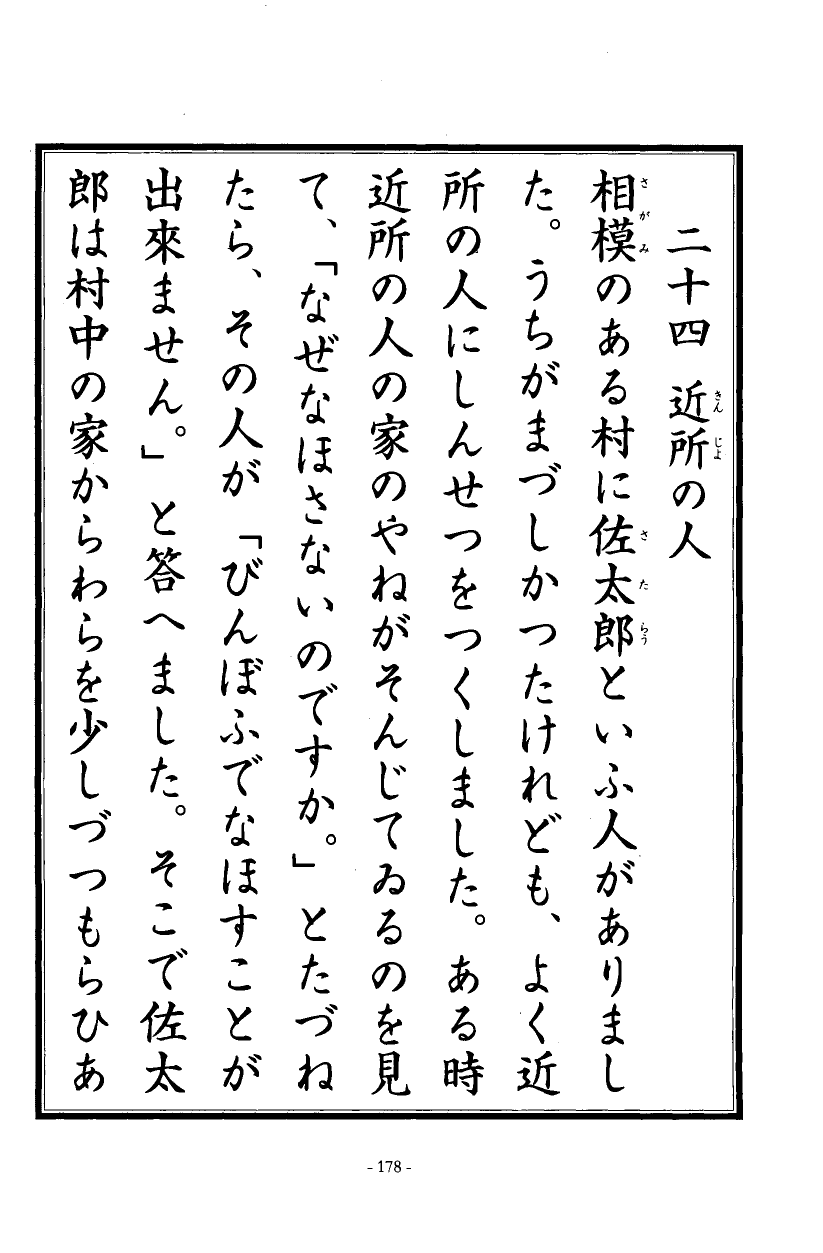 二十四 近所の人
相模のある村に佐太郎といふ人がありまし
た。うちがまづしかつたけれども、よく近
所の人にしんせつをつくしました。ある時
近所の人の家のやねがそんじてゐるのを見
て、「なぜなほさないのですか。」とたづね
たら、その人が「びんぼふでなほすことが
出來ません。」と答へました。そこで佐太
郎は村中の家からわらを少しづつもらひあ
- 178 -